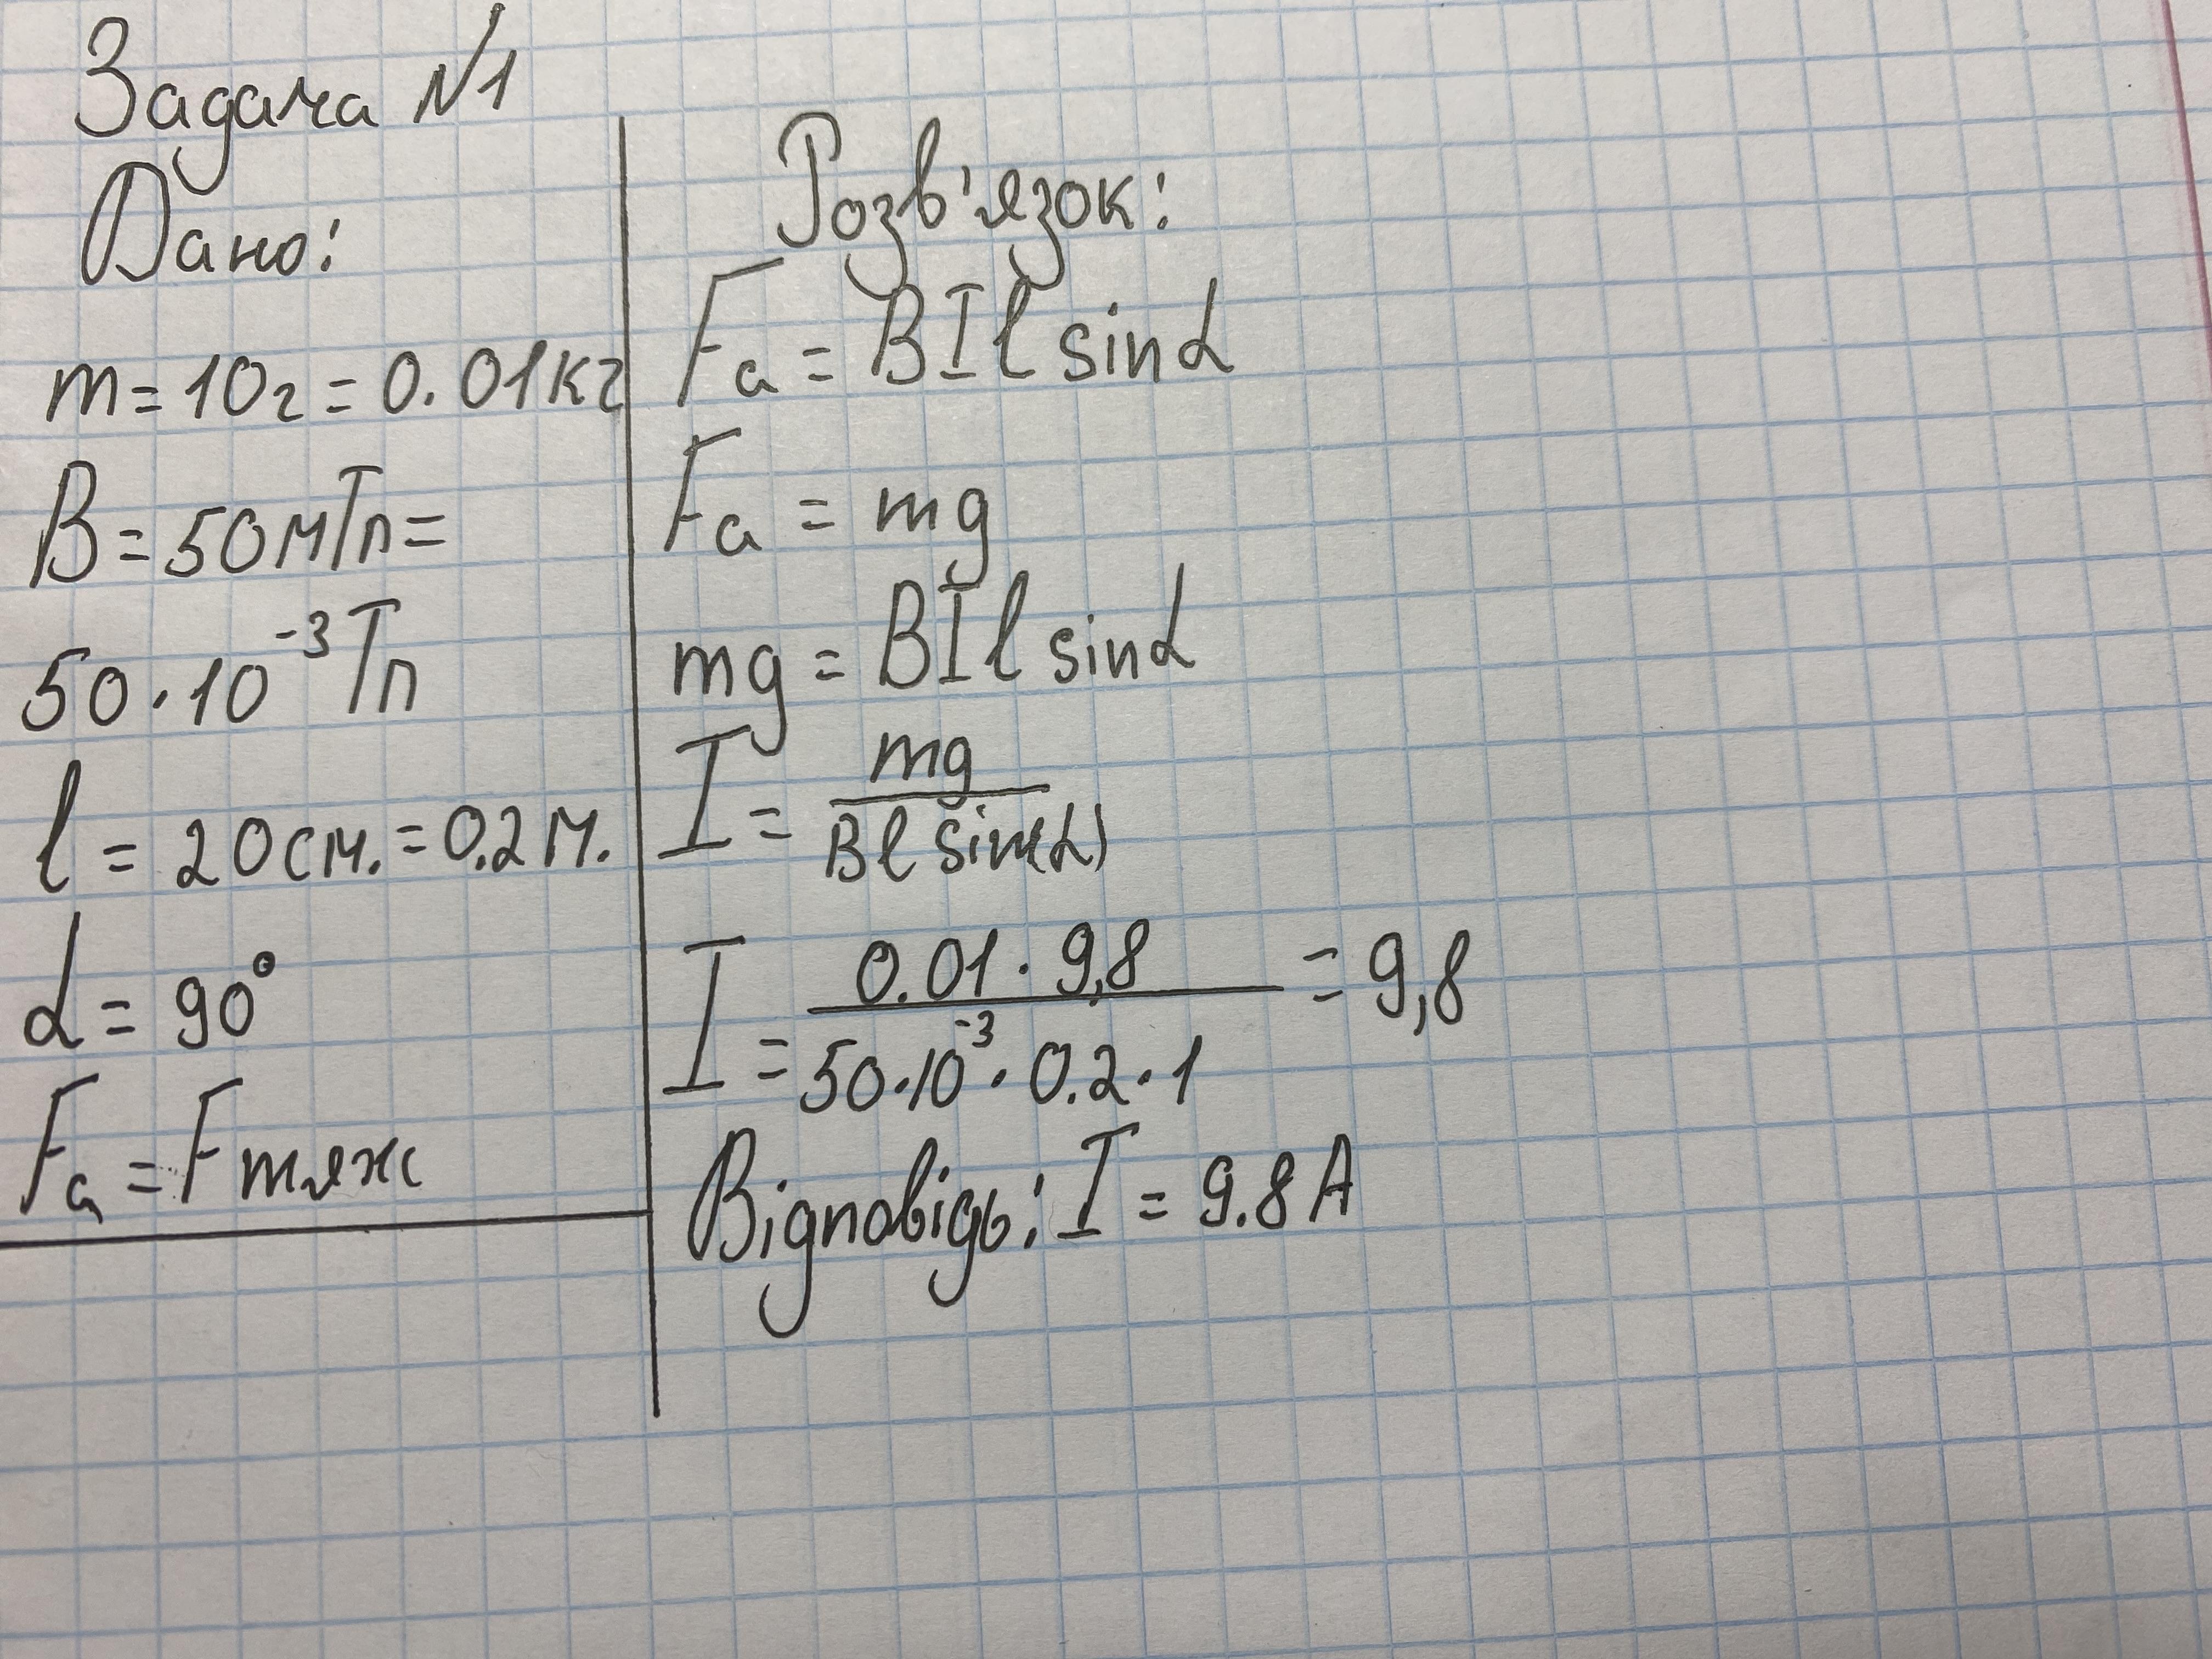 Задача №1
Дано:
m = 10г = 0.01кг
B = 50мТл =
50 · 10⁻³ Тл
l = 20см. = 0.2м.
α = 90°
Fa = Fтяж
Розв'язок:
Fa = BIl sinα
Fa = mg
mg = BIl sinα
I = mg / Bl sin(α)
I = 0.01 · 9,8 / 50·10⁻³ · 0.2 · 1 = 9,8
Відповідь: I = 9.8 А